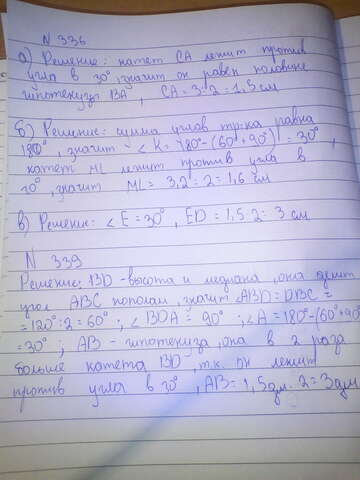 N 336
а) Решение: катет CA лежит против
угла в 30°, значит он равен половине
гипотенузы BA, CA = 3:2 = 1,5 см
б) Решение: сумма углов тр-ка равна
180°, значит ∠K = 180° - (60° + 90°) = 30°,
катет ML лежит против угла в
30°, значит ML = 3,2 : 2 = 1,6 см
в) Решение: ∠E = 30°, ED = 1,5·2 = 3 см
N 339
Решение: BD - высота и медиана, она делит
угол ABC пополам, значит ∠ABD = DBC =
= 120° : 2 = 60°; ∠BDA = 90°; ∠A = 180° - (60° + 90°)
= 30°; AB - гипотенуза, она в 2 раза
больше катета BD, т.к. он лежит
против угла в 30°, AB = 1,5 дм · 2 = 3 дм